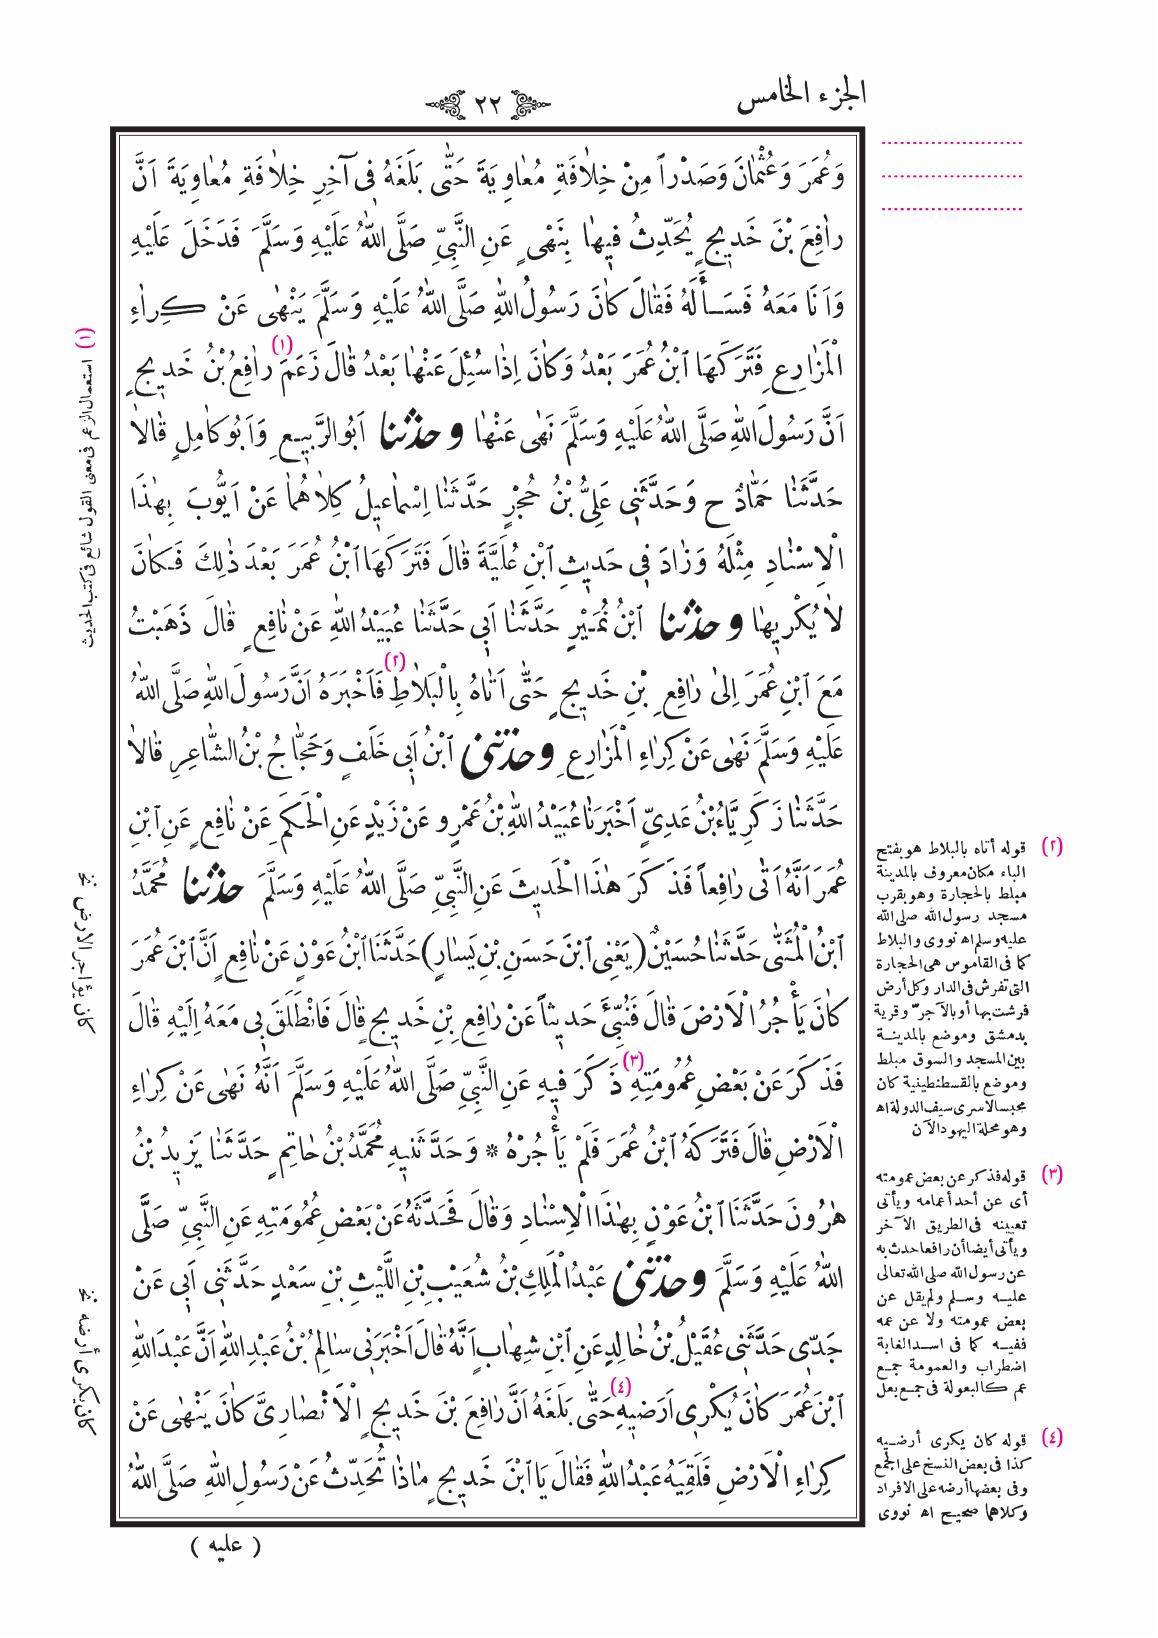 الجزء الخامس
٢٢
وَعُمَرَ وَعُثْمٰانَ وَصَدْراً مِنْ خِلاٰفَةِ مُعٰاوِيَةَ حَتّٰى بَلَغَهُ فِى آخِرِ خِلاٰفَةِ مُعٰاوِيَةَ اَنَّ
رٰافِعَ بْنَ خَديجٍ يُحَدِّثُ فيهٰا بِنَهْىٍ عَنِ النَّبِىِّ صَلَّى اللهُ عَلَيْهِ وَسَلَّمَ فَدَخَلَ عَلَيْهِ
وَاَنَا مَعَهُ فَسَأَلَهُ فَقٰالَ كٰانَ رَسُولُ اللهِ صَلَّى اللهُ عَلَيْهِ وَسَلَّمَ يَنْهٰى عَنْ كِرٰاءِ
الْمَزٰارِعِ فَتَرَكَهَا ابْنُ عُمَرَ بَعْدُ وَكٰانَ اِذٰا سُئِلَ عَنْهٰا بَعْدُ قٰالَ زَعَمَ (١) رٰافِعُ بْنُ خَديجٍ
اَنَّ رَسُولَ اللهِ صَلَّى اللهُ عَلَيْهِ وَسَلَّمَ نَهٰى عَنْهٰا وحدثنا اَبُو الرَّبيعِ وَاَبُو كٰامِلٍ قٰالاٰ
حَدَّثَنٰا حَمّٰادٌ ح وَحَدَّثَنى عَلِىُّ بْنُ حُجْرٍ حَدَّثَنٰا اِسْمٰاعيلُ كِلاٰهُمٰا عَنْ اَيُّوبَ بِهٰذَا
الْاِسْنٰادِ مِثْلَهُ وَزٰادَ فى حَديثِ ابْنِ عُلَيَّةَ قٰالَ فَتَرَكَهَا ابْنُ عُمَرَ بَعْدَ ذٰلِكَ فَكٰانَ
لاٰ يُكْريهٰا وحدثنا ابْنُ نُمَيْرٍ حَدَّثَنٰا اَبى حَدَّثَنٰا عُبَيْدُ اللهِ عَنْ نٰافِعٍ قٰالَ ذَهَبْتُ
مَعَ ابْنِ عُمَرَ اِلىٰ رٰافِعِ بْنِ خَديجٍ حَتّٰى اَتٰاهُ بِالْبَلاٰطِ (٢) فَاَخْبَرَهُ اَنَّ رَسُولَ اللهِ صَلَّى اللهُ
عَلَيْهِ وَسَلَّمَ نَهٰى عَنْ كِرٰاءِ الْمَزٰارِعِ وحدثنى ابْنُ اَبى خَلَفٍ وَحَجّٰاجُ بْنُ الشّٰاعِرِ قٰالاٰ
حَدَّثَنٰا زَكَرِيّٰاءُ بْنُ عَدِىٍّ اَخْبَرَنٰا عُبَيْدُ اللهِ بْنُ عَمْرٍو عَنْ زَيْدٍ عَنِ الْحَكَمِ عَنْ نٰافِعٍ عَنِ ابْنِ
عُمَرَ اَنَّهُ اَتٰى رٰافِعاً فَذَكَرَ هٰذَا الْحَديثَ عَنِ النَّبِىِّ صَلَّى اللهُ عَلَيْهِ وَسَلَّمَ حدثنا مُحَمَّدُ
ابْنُ الْمُثَنّٰى حَدَّثَنٰا حُسَيْنٌ (يَعْنِى ابْنَ حَسَنِ بْنِ يَسٰارٍ) حَدَّثَنَا ابْنُ عَوْنٍ عَنْ نٰافِعٍ اَنَّ ابْنَ عُمَرَ
كٰانَ يَأْجُرُ الْاَرْضَ قٰالَ فَنُبِّئَ حَديثاً عَنْ رٰافِعِ بْنِ خَديجٍ قٰالَ فَانْطَلَقَ بى مَعَهُ اِلَيْهِ قٰالَ
فَذَكَرَ عَنْ بَعْضِ عُمُومَتِهِ (٣) ذَكَرَ فيهِ عَنِ النَّبِىِّ صَلَّى اللهُ عَلَيْهِ وَسَلَّمَ اَنَّهُ نَهٰى عَنْ كِرٰاءِ
الْاَرْضِ قٰالَ فَتَرَكَهُ ابْنُ عُمَرَ فَلَمْ يَأْجُرْهُ * وَحَدَّثَنيهِ مُحَمَّدُ بْنُ حٰاتِمٍ حَدَّثَنٰا يَزيدُ بْنُ
هٰرُونَ حَدَّثَنَا ابْنُ عَوْنٍ بِهٰذَا الْاِسْنٰادِ وَقٰالَ فَحَدَّثَهُ عَنْ بَعْضِ عُمُومَتِهِ عَنِ النَّبِىِّ صَلَّى
اللهُ عَلَيْهِ وَسَلَّمَ وحدثنى عَبْدُ الْمَلِكِ بْنُ شُعَيْبِ بْنِ اللَّيْثِ بْنِ سَعْدٍ حَدَّثَنى اَبى عَنْ
جَدّى حَدَّثَنى عُقَيْلُ بْنُ خٰالِدٍ عَنِ ابْنِ شِهٰابٍ اَنَّهُ قٰالَ اَخْبَرَنى سٰالِمُ بْنُ عَبْدِ اللهِ اَنَّ عَبْدَ اللهِ
ابْنَ عُمَرَ كٰانَ يُكْرى اَرَضيهِ (٤) حَتّٰى بَلَغَهُ اَنَّ رٰافِعَ بْنَ خَديجٍ الْاَنْصٰارِىَّ كٰانَ يَنْهٰى عَنْ
كِرٰاءِ الْاَرْضِ فَلَقِيَهُ عَبْدُ اللهِ فَقٰالَ يَا ابْنَ خَديجٍ مٰاذٰا تُحَدِّثُ عَنْ رَسُولِ اللهِ صَلَّى اللهُ
( عليه )
(٢) قوله أتاه بالبلاط هو بفتح
الباء مكان معروف بالمدينة
مبلط بالحجارة وهو بقرب
مسجد رسول الله صلى الله
عليه وسلم اه نووى والبلاط
كما فى القاموس هى الحجارة
التى تفرش فى الدار وكل أرض
فرشت بها أو بالآجرّ وقرية
بدمشق وموضع بالمدينة
بين المسجد والسوق مبلط
وموضع بالقسطنطينية كان
محبسا لاسرى سيف الدولة اه
وهو محلة اليهود الآن
(٣) قوله فذكر عن بعض عمومته
أى عن أحد أعمامه ويأتى
تعيينه فى الطريق الآخر
ويأتى أيضا أن رافعا حدث به
عن رسول الله صلى الله تعالى
عليه وسلم ولم يقل عن
بعض عمومته ولا عن عمه
ففيه كما فى اسد الغابة
اضطراب والعمومة جمع
عم كالبعولة فى جمع بعل
(٤) قوله كان يكرى أرضيه
كذا فى بعض النسخ على الجمع
وفى بعضها أرضه على الافراد
وكلاهما صحيح اه نووى
(١) استعمال الزعم فى معنى القول شائع فى كتب الحديث
كان يؤاجر الارض نخ
كان يكرى أرضه نخ